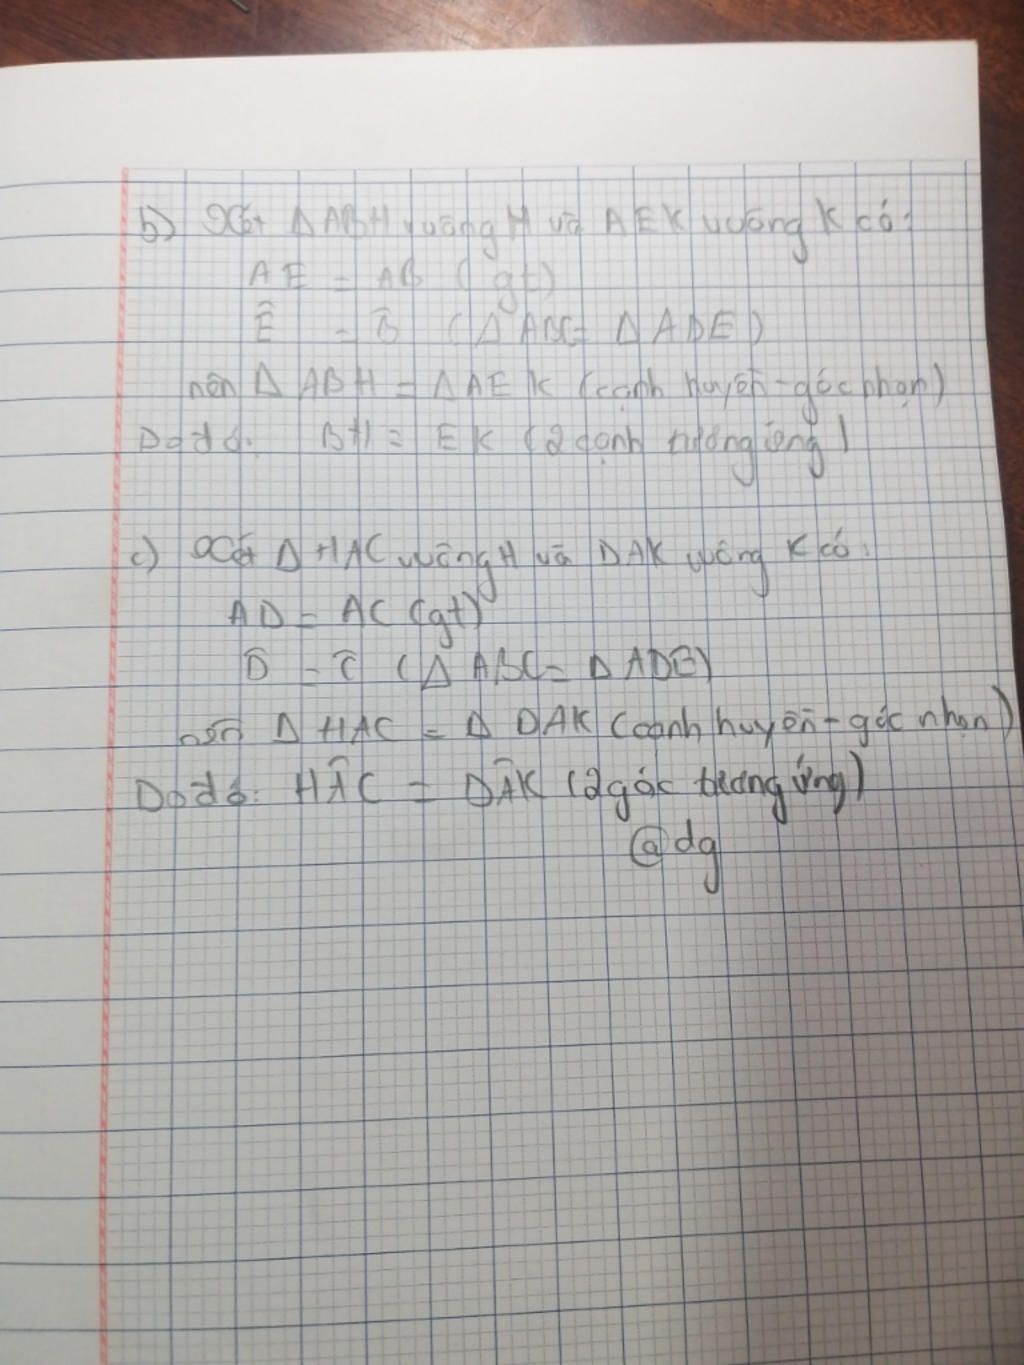 b) Xét Δ ABH vuông H và AEK vuông K có:
AE = AB (gt)
Ê = B̂ (Δ ABC = Δ ADE)
nên Δ ABH = Δ AEK (cạnh huyền - góc nhọn)
Do đó: BH = EK (2 cạnh tương ứng)
c) Xét Δ HAC vuông H và DAK vuông K có:
AD = AC (gt)
D̂ = Ĉ (Δ ABC = Δ ADE)
nên Δ HAC = Δ DAK (cạnh huyền - góc nhọn)
Do đó: HÂC = DÂK (2 góc tương ứng)
@dg